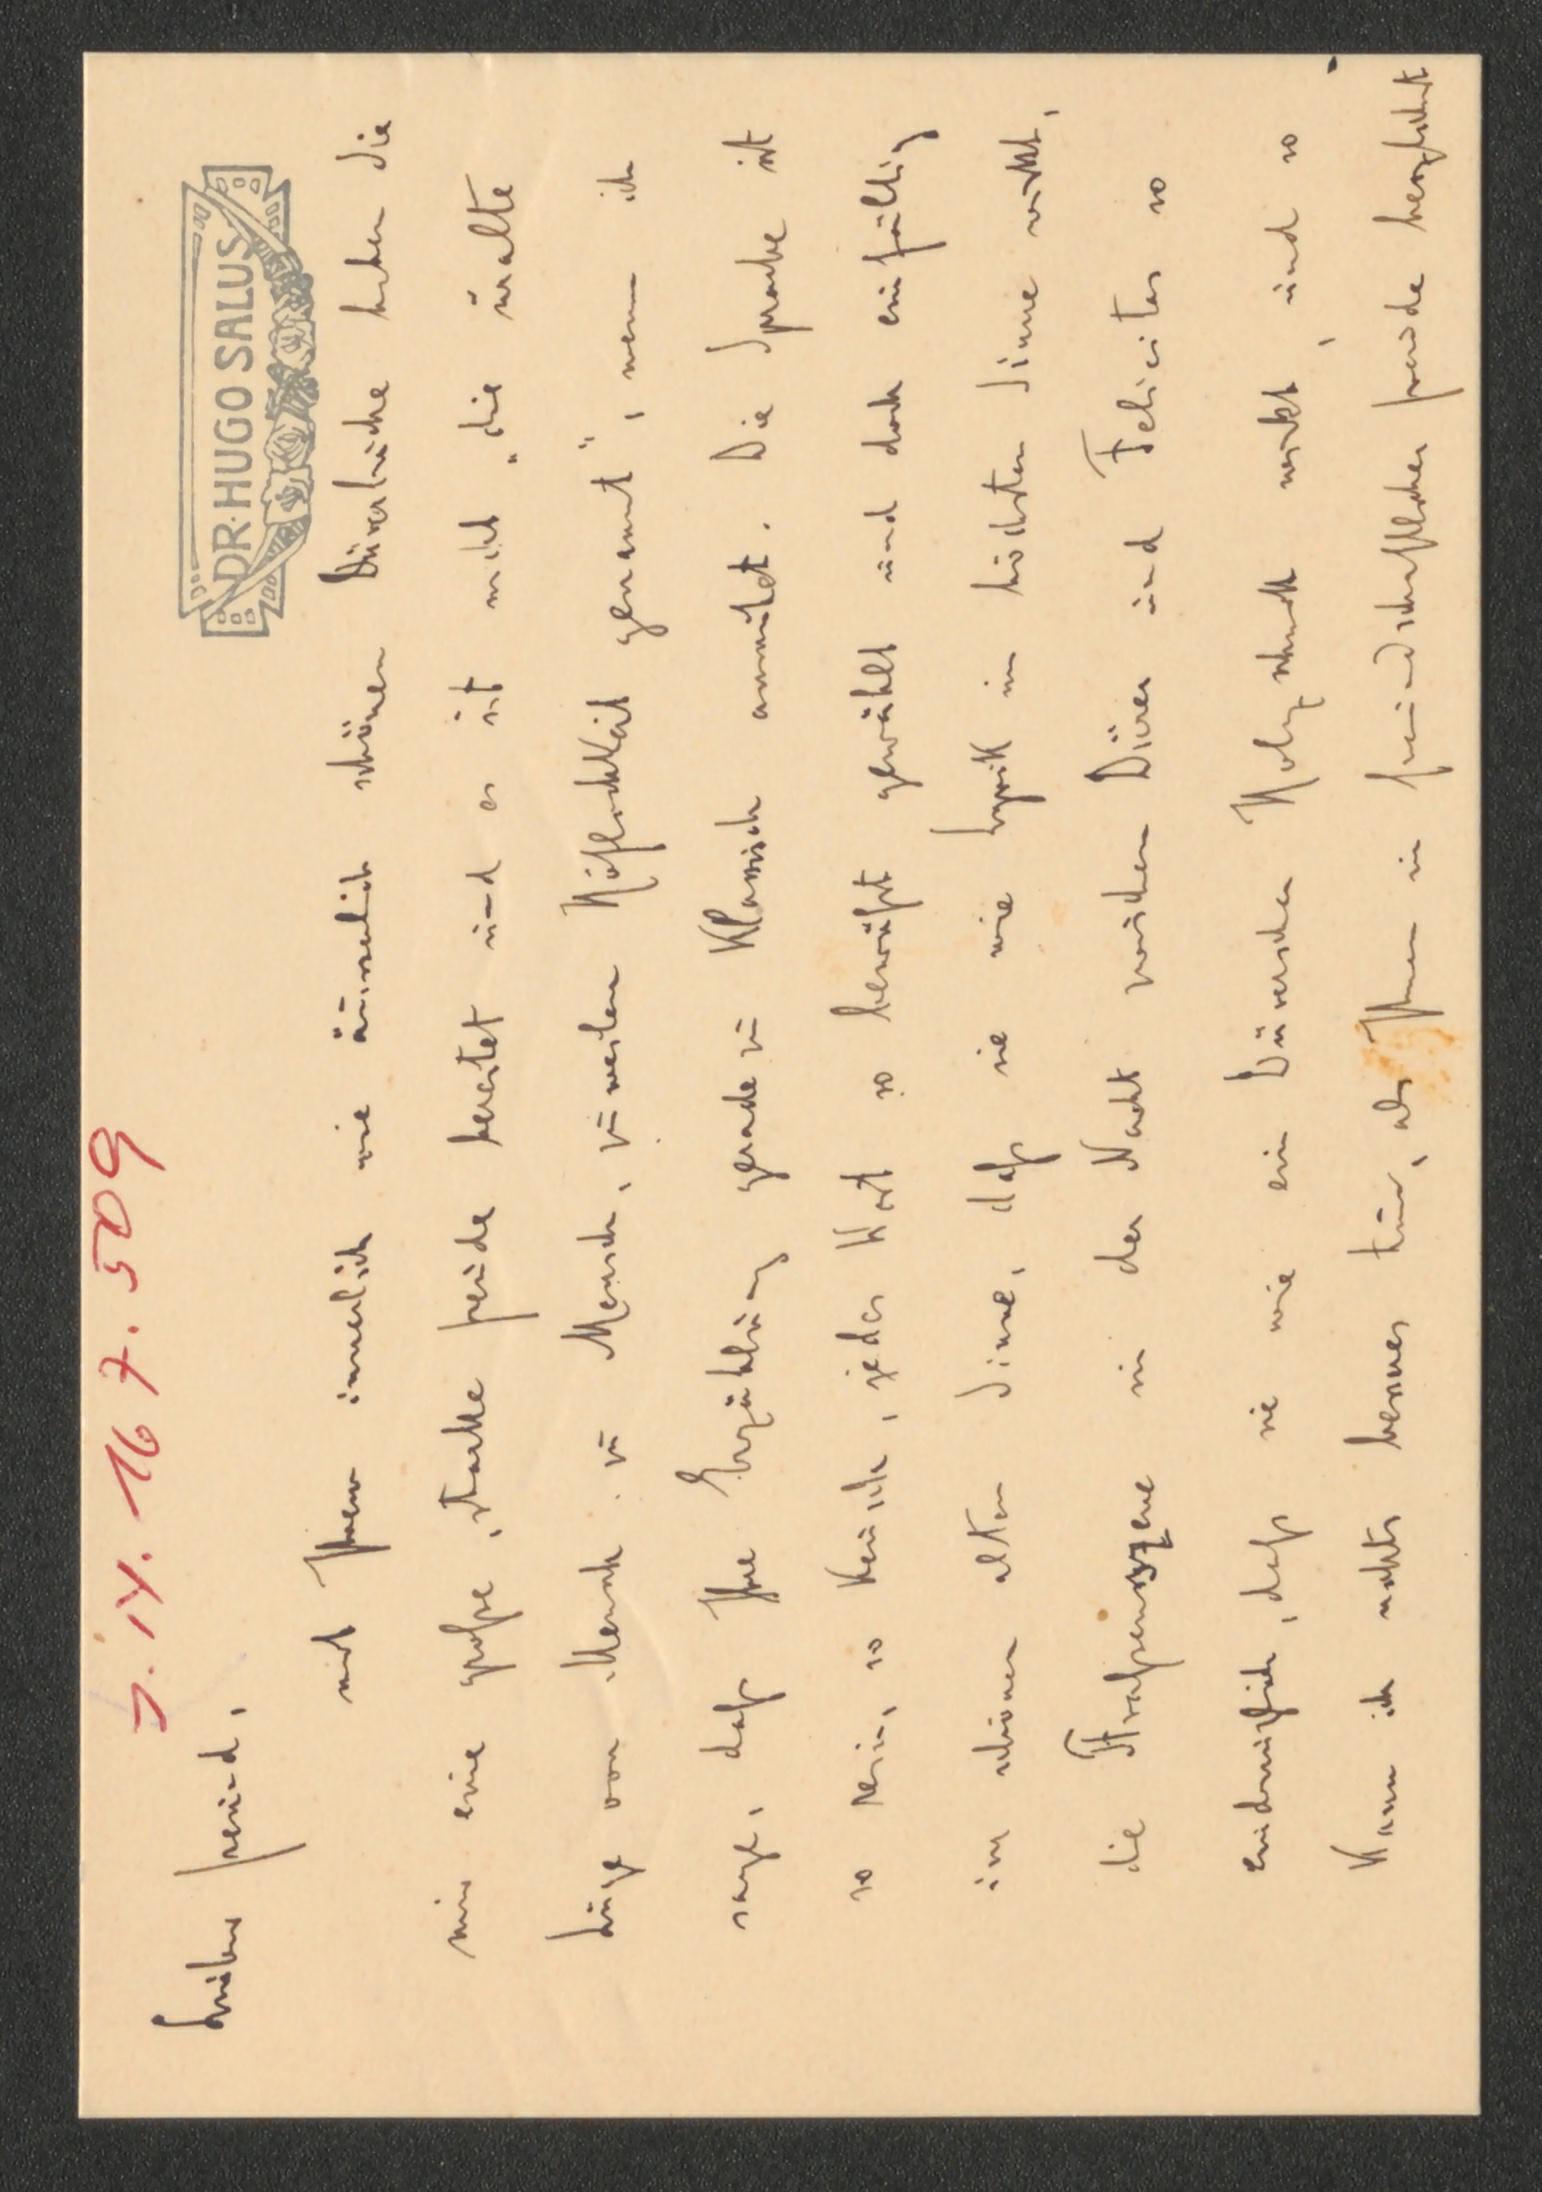 J. N. 167.509
DR·HUGO SALUS
Lieber Freund,
mit Ihrem innerlich wie äusserlich schönen Dürerbüche haben Sie
mir eine große, starke Freude bereitet und es ist nicht „die uralte
Lüge von Mensch zu Mensch, zuweilen Höflichkeit genannt", wenn ich
sage, daß Ihre Erzählung geradezu klassisch anmutet. Die Sprache ist
so rein, so keusch, jedes Wort so bewußt gewählt und doch einfältig
im schönen alten Sinne, daß sie wie Lyrik im höchsten Sinne wirkt,
die Straßenszene in der Nacht zwischen Dürer und Felicitas so
eindringlich, daß sie wie ein Dürerscher Holzschnitt wirkt, und so
kann ich nichts besseres tun, als Ihnen in freundschaftlicher Freude herzlichst